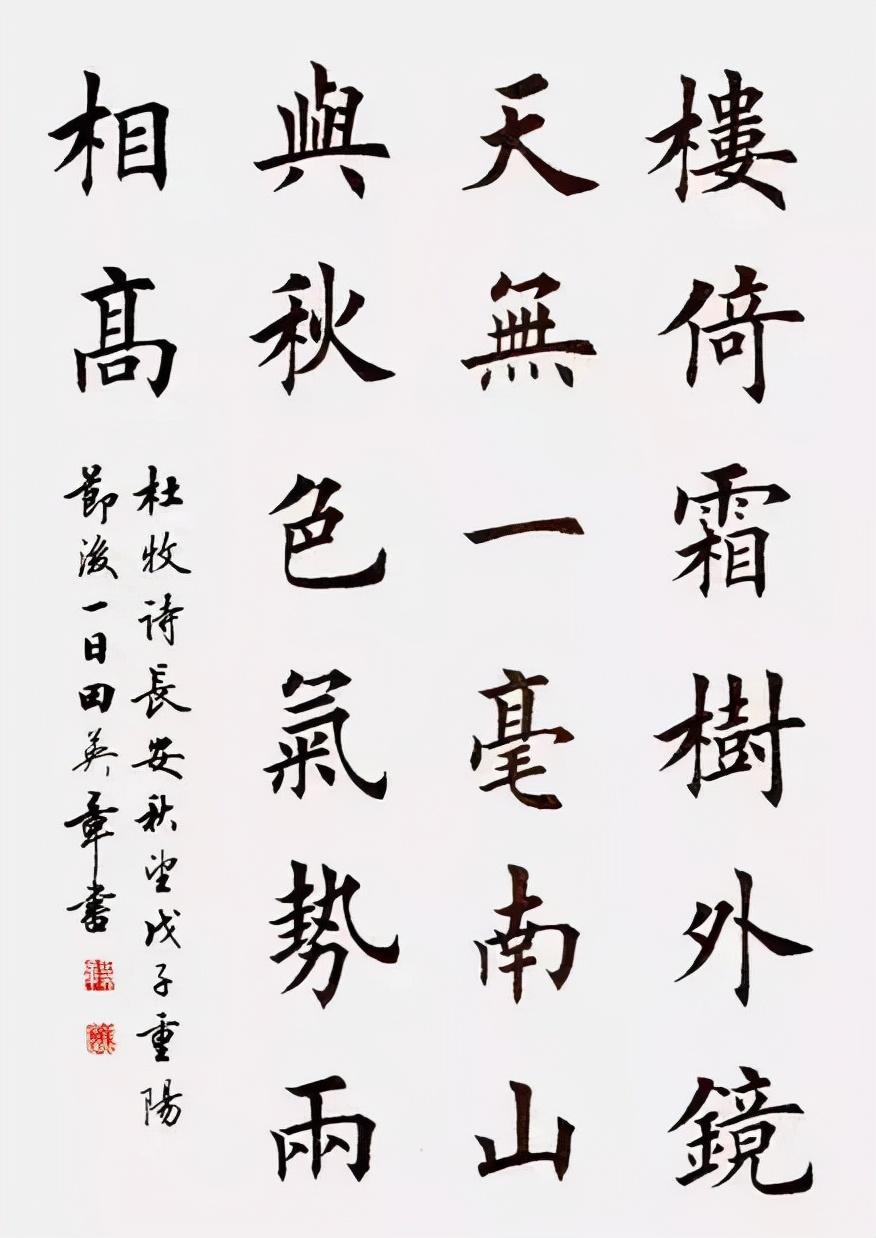 樓倚霜樹外鏡
天無一毫南山
與秋色氣勢兩
相高
杜牧诗長安秋望戊子重陽
節後一日田英章書